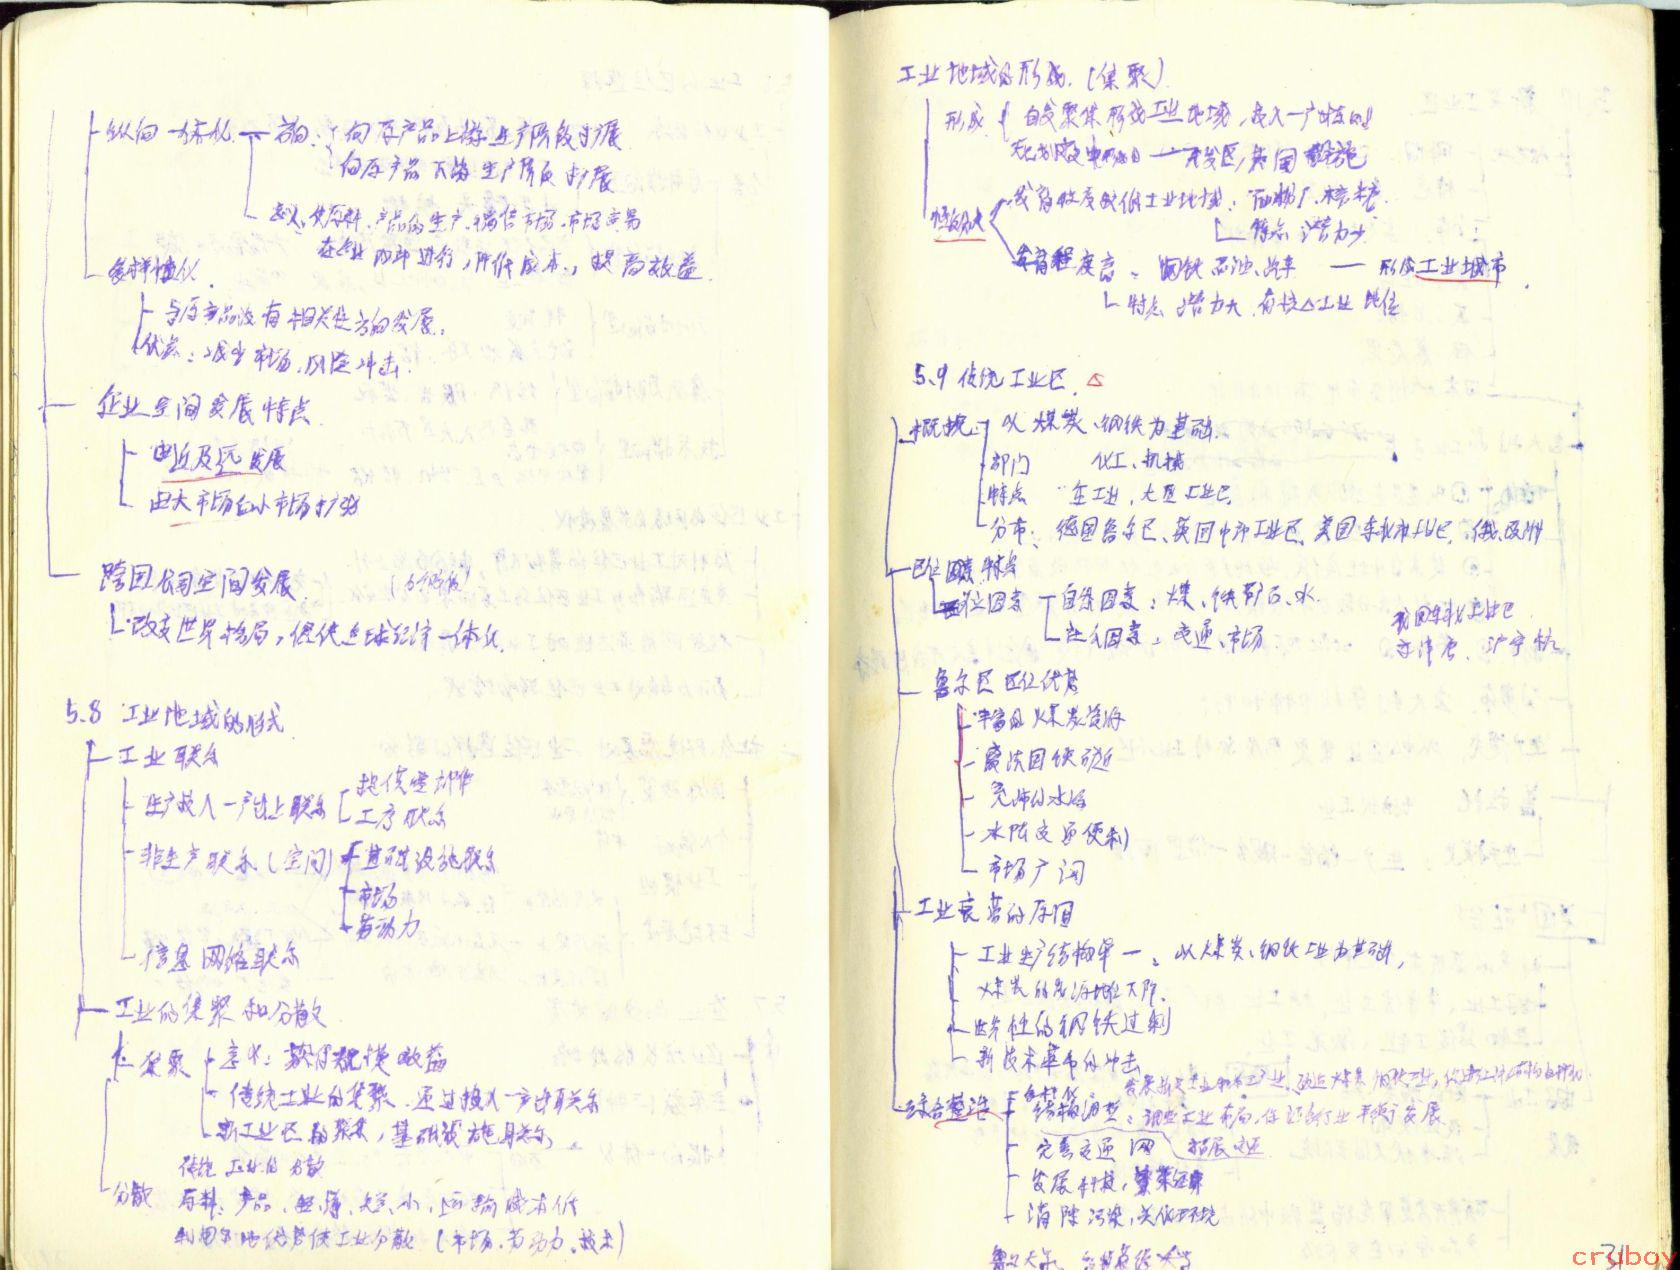 纵向一体化 方向：向原产品上游生产阶段扩展
向原产品下游生产阶段扩展
意义：使原料、产品的生产、销售市场、市场交易
在企业内部进行，降低成本，提高效益
多样性化
与原产品没有相关性方向发展
优点：减少市场风险冲击
企业空间发展特点
由近及远发展
由大市场向小市场扩张
跨国公司空间发展
改变世界格局，促使全球经济一体化
5.8 工业地域的形式
工业联系
生产投入—产出上联系 提供零部件
工序联系
非生产联系（空间） 基础设施联系
市场
劳动力
信息网络联系
工业的集聚和分散
集聚 意义：获得规模效益
传统工业的集聚 通过投入—产出联系
新工业区的聚集，基础设施联系
传统工业的分散
分散 原料、产品、轻、薄、短、小，运输成本低
利用各地优势使工业分散（市场、劳动力、技术）
工业地域的形成（集聚）
形成 自发聚集形成工业地域，投入—产出
规划 开发区，共同 设施
发育程度较低工业地域：面粉厂、榨糖
特点 潜力少
发育程度高：钢铁、石油、汽车 — 形成工业城市
特点 潜力大
5.9 传统工业区
概况 以煤炭、钢铁为基础
部门 化工、机械
特点 重工业，大型工业区
分布：德国鲁尔区、英国中部工业区、美国东北部工业区
区位因素
区位因素 自然因素：煤、铁矿石、水
社会因素：交通、市场
鲁尔区区位优势
丰富的煤炭资源
离法国铁矿近
充沛的水源
水陆交通便利
市场广阔
工业衰落的原因
工业生产结构单一：以煤炭、钢铁工业为基础
煤炭的能源地位下降
世界性的钢铁过剩
新技术革命的冲击
综合整治 结构调整：调整工业布局
完善交通网 拓展交通
发展科技，繁荣经济
消除污染，美化环境
31
cruboy